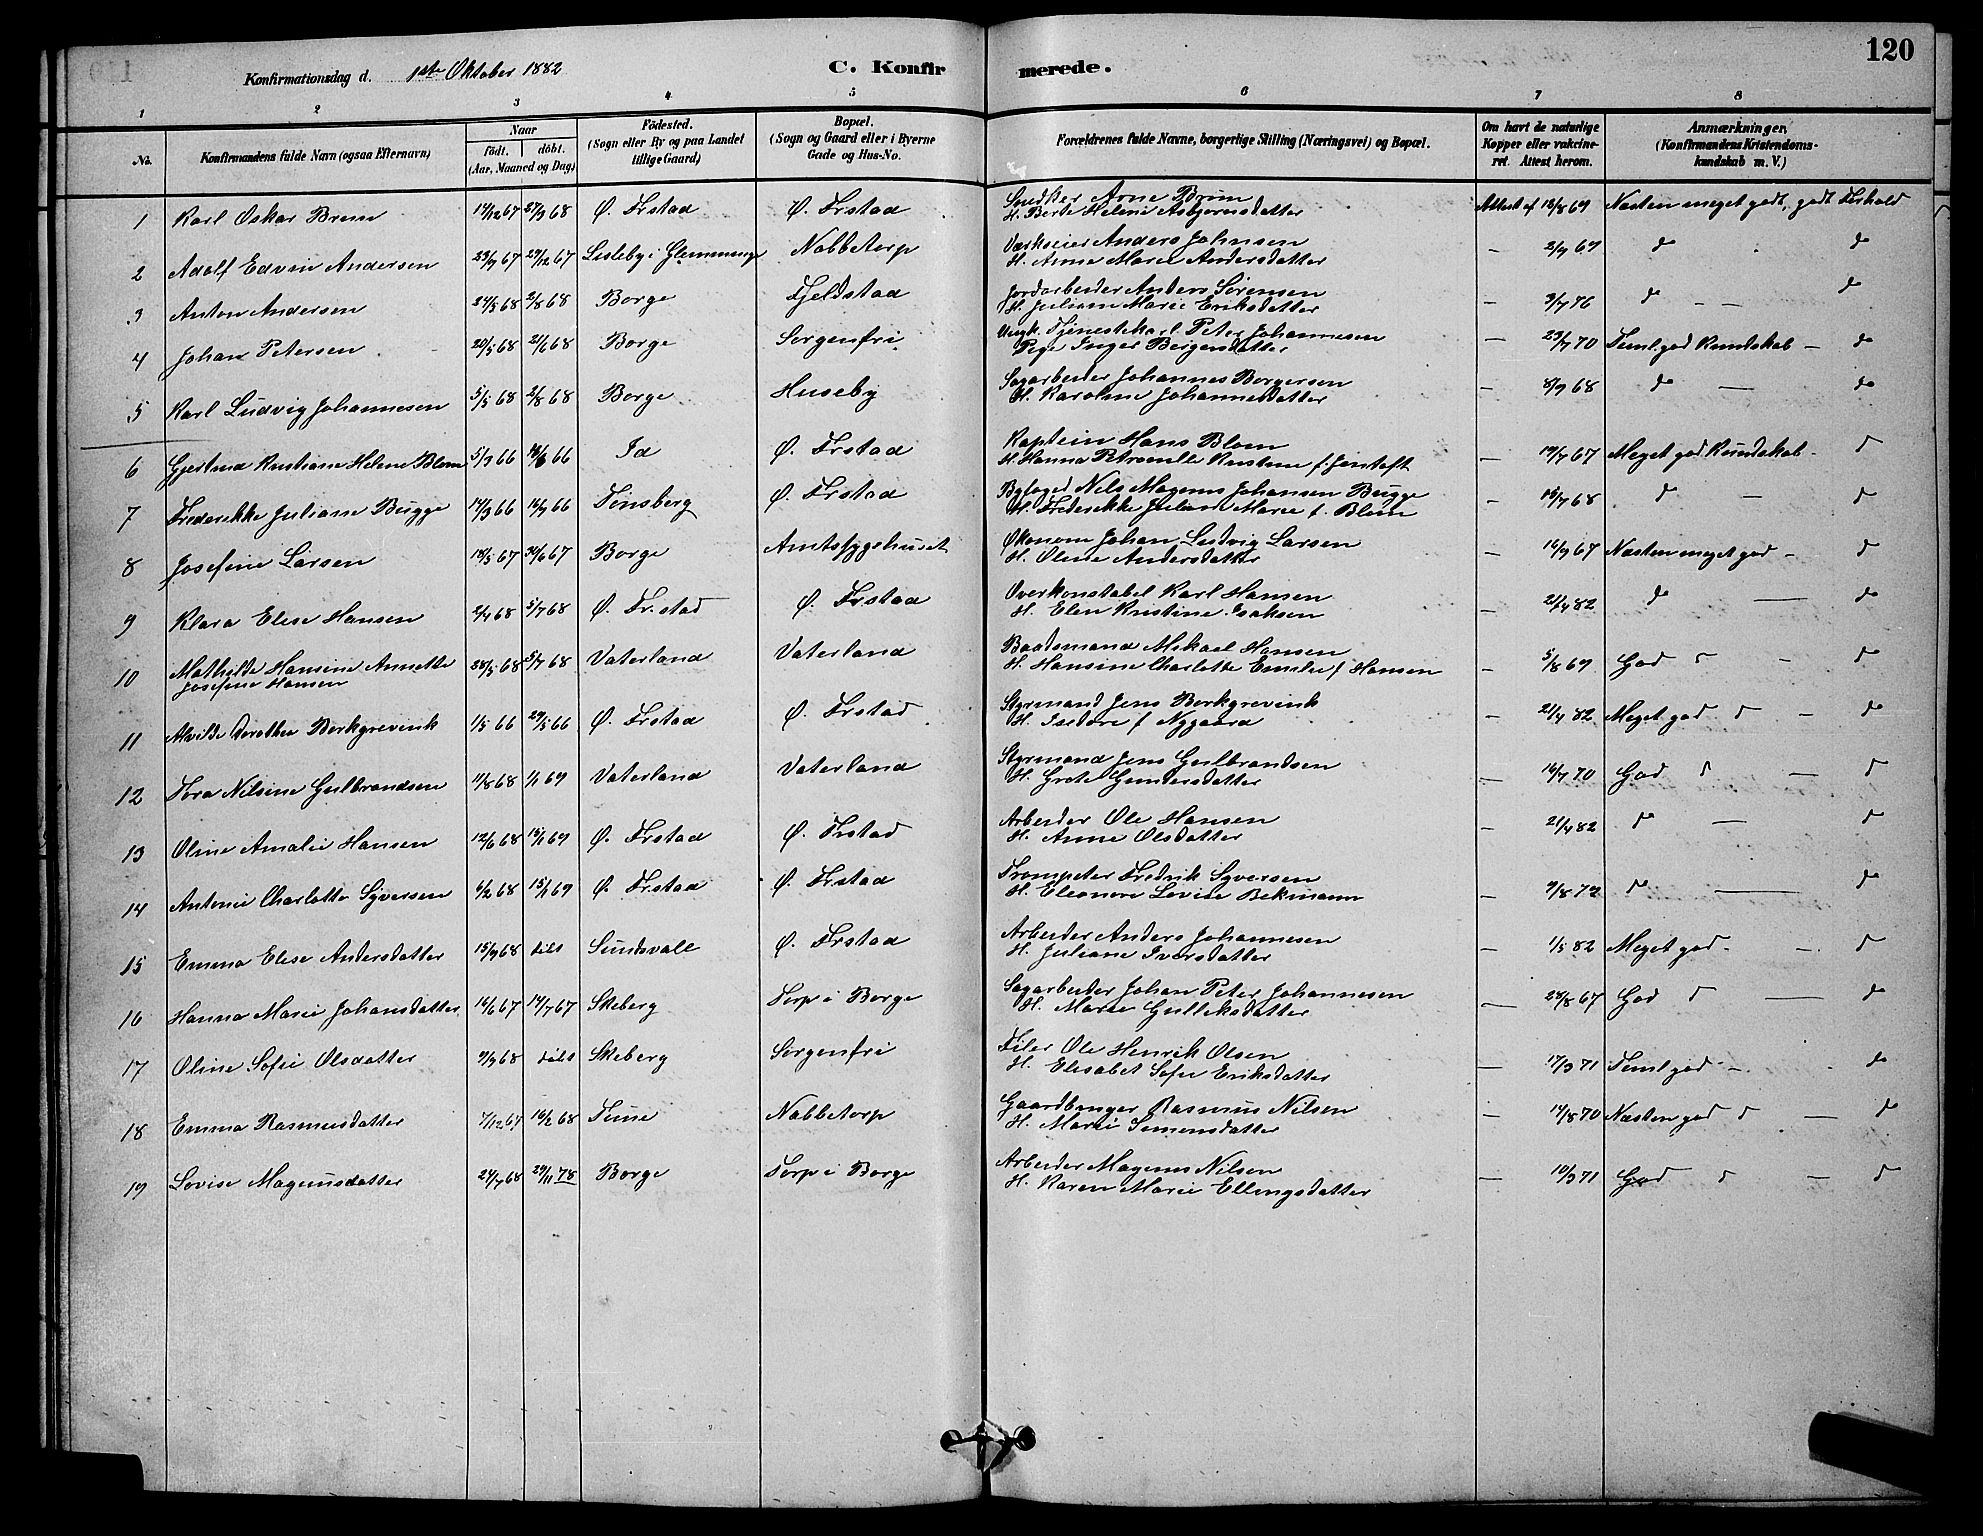 120
Konfirmationsdag d. 1ste Oktober 1882 C. Konfirmerede.
1 2 3 4 5 6 7 8
No. Konfirmandens fulde Navn (ogsaa Efternavn) Naar födt. döbt. (Aar, Maaned og Dag) Födested. (Sogn eller By og paa Landet tillige Gaard) Bopæl. (Sogn og Gaard eller i Byerne Gade og Hus-No. Forældrenes fulde Navne, borgerlige Stilling (Næringsvei) og Bopæl. Om havt de naturlige Kopper eller vakcineret. Attest herom. Anmærkninger. (Konfirmandens Kristendomskundskab m. V.)
1 Karl Oskar Brun 14/12 67 27/9 68 Ø. Frstad Ø. Frstad Snedker Arne Brun
H. Berte Helene Asbjørnsdatter Attest af 18/8 69 Næsten meget godt, godt Forhold
2 Adolf Edvin Andersen 23/9 67 29/12 67 Lisleby i Glemminge Nabbetorp Værkseier Anders Johnsen
H. Anne Marie Andersdatter — 2/9 69 do do
3 Anton Andersen 24/5 68 2/8 68 Borge Fjeldstad Jordarbeider Anders Sørensen
H. Juliane Marie Eriksdatter — 3/7 76 do — do
4 Johan Petersen 20/5 68 21/6 68 Borge Sorgenfri Ungk. Tjenestekarl Peter Johannesen
Pige Inger Beigersdatter — 23/7 70 Teml. god Kundskab — do
5 Karl Ludvig Johannesen 5/5 68 2/8 68 Borge Huseby Sagarbeider Johannes Borgersen
H. Karoline Johannesdatter — 8/9 68 do — do
6 Gjertrud Kristiane Helene Blom 5/3 66 18/6 66 Id Ø. Frstad Kaptein Hans Blom
H. Hanna Petronelle Kristine f. Jentoft — 19/7 67 Meget god Kundskab - d
7 Frederikke Juliane Bugge 14/3 66 16/9 66 Tønsberg Ø. Frstad Byfoged Nils Magnus Johansen Bugge
H. Frederikke Juliane Marie f. Blom — 15/7 68 d — d
8 Josefine Larsen 18/5 67 30/6 67 Borge Amtssygehuset Økonom Johan Ludvig Larsen
H. Oline Andersdatter — 16/9 67 Næsten meget god — d
9 Klara Elise Hansen 2/4 68 5/7 68 Ø. Fr.stad Ø. Frstad Overkonstabel Karl Hansen
H. Elen Kristine Isaksen — 21/4 82 do — do
10 Mathilde Hansine Annette
Josefine Hansen 28/5 68 5/7 68 Vaterland Vaterland Baadsmand Mikael Hansen
H. Hansine Charlotte Emilie f. Hansen — 5/8 69 God d — do
11 Alvilde Dorothea Borkgrevink 1/5 66 29/5 66 Ø. Frstad Ø. Frstad Styrmand Jens Borkgrevink
H. Isedore f Nygaard — 21/4 82 Meget god d — do
12 Tora Nilsine Gulbrandsen 11/8 68 1/1 69 Vaterland Vaterland Styrmand Jens Gulbrandsen
H. Grete Gundersdatter — 16/7 70 God d — d
13 Oline Amalie Hansen 12/6 68 15/1 69 Ø. Frstad Ø. Frstad Arbeider Ole Hansen
H. Anne Olsdatter — 21/4 82 d — d
14 Antonie Charlotte Syversen 6/2 68 15/1 69 Ø. Frstad Ø. Frstad Trompeter Fredrik Syversen
H. Eleonore Lovise Bekmann — 9/8 72 d — do
15 Emma Elise Andersdatter 15/9 68 Sundsvall Ø. Frstad Arbeider Anders Johannesen
H. Juliane Iversdatter — 1/5 82 Meget god — d
16 Hanna Marie Johansdatter 16/6 67 14/7 67 Skeberg Torp i Borge Sagarbeider Johan Peter Johannesen
H. Marie Gulleksdatter — 28/8 67 God d — do
17 Oline Sofie Olsdatter 9/9 68 Skeberg Sorgenfri Filer Ole Henrik Olsen
H. Elisabet Sofie Eriksdatter — 17/3 71 Teml. god — do
18 Emma Rasmusdatter 7/12 67 16/2 68 Tune Nabbetorp Gaardbruger Rasmus Nilsen
H. Marie Simensdatter — 14/8 70 Næsten god d — do
19 Lovise Magnusdatter 24/7 68 29/11 78 Borge Torp i Borge Arbeider Magnus Nilsen
H. Karen Marie Ellingsdatter — 10/3 71 God d — d